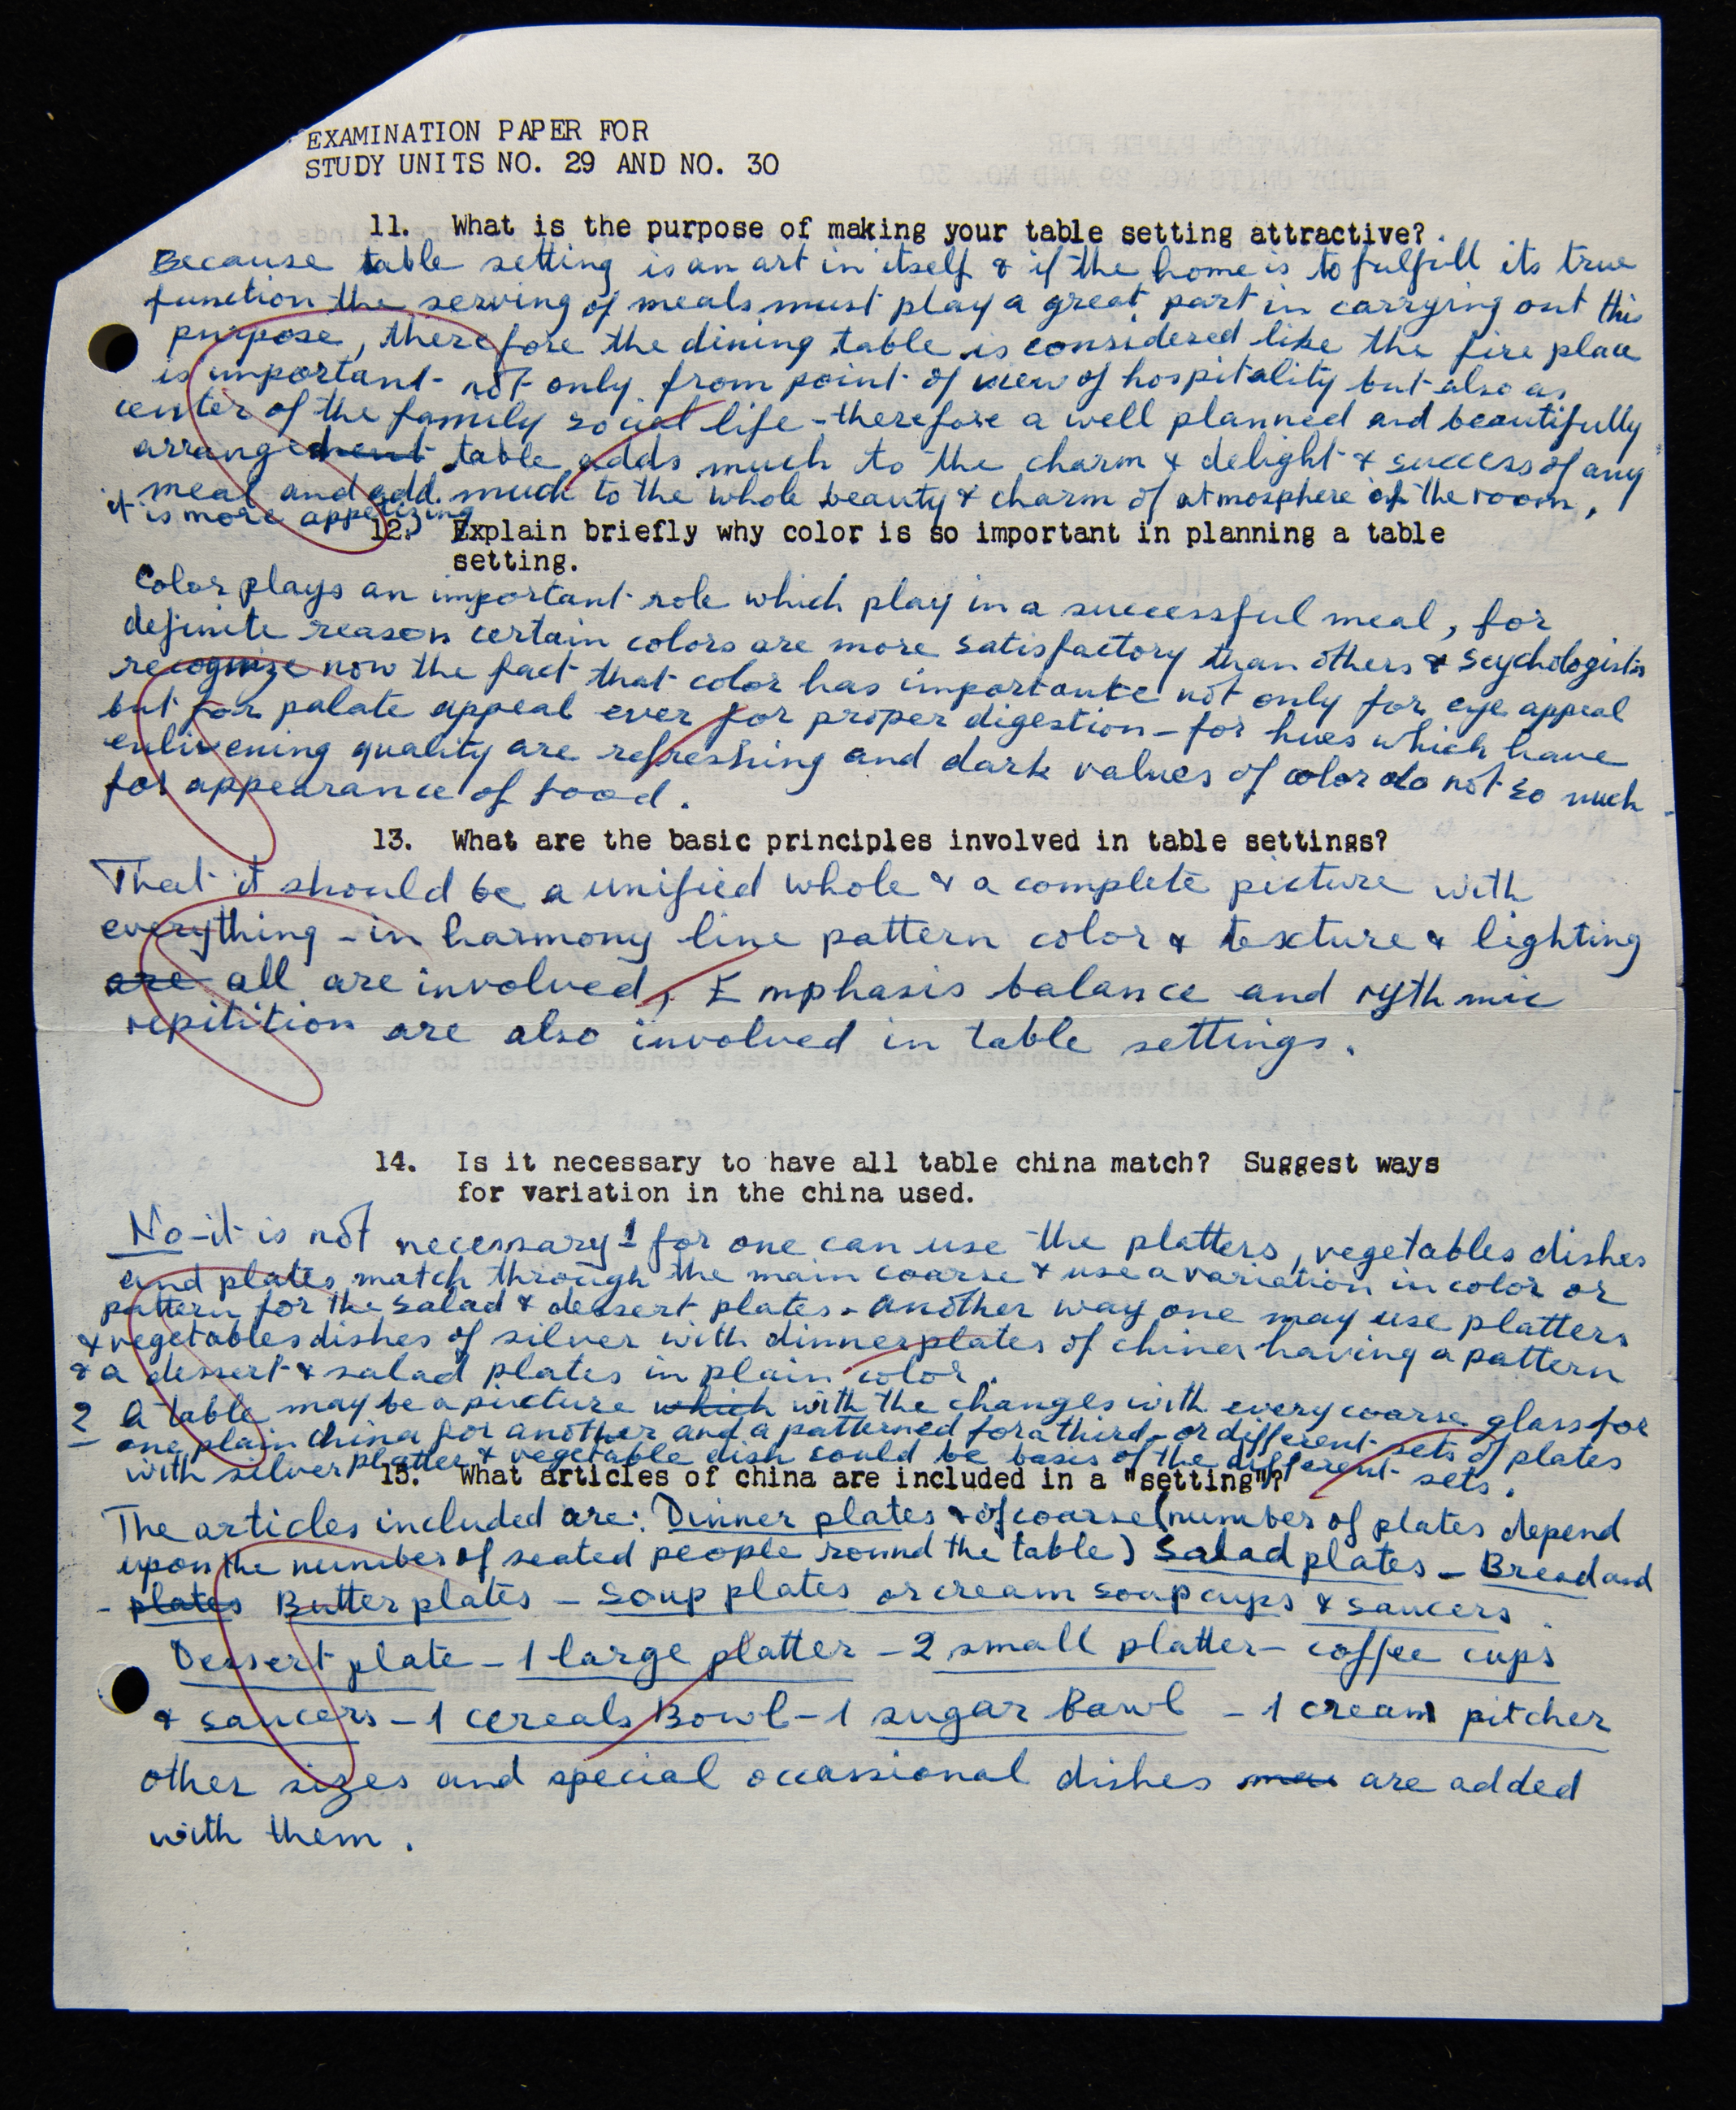 EXAMINATION PAPER FOR
STUDY UNITS NO. 29 AND NO. 30
11. What is the purpose of making your table setting attractive?
Because table setting is an art in itself & if the home is to fulfill its true
function the serving of meals must play a great part in carrying out this
purpose, therefore the dining table is considered like the fire place
is important not only from point of view of hospitality but also as
center of the family social life - therefore a well planned and beautifully
arrangement table adds much to the charm & delight & success of any
meal and add much to the whole beauty & charm of atmosphere of the room,
it is more appetizing
12. Explain briefly why color is so important in planning a table
setting.
Color plays an important role which play in a successful meal, for
definite reason certain colors are more satisfactory than others & scychologists
recognize now the fact that color has importante not only for eye appeal
but for palate appeal ever for proper digestion - for hues which have
enlivening quality are refreshing and dark values of color do not so much
for appearance of food.
13. What are the basic principles involved in table settings?
That it should be a unified whole & a complete picture with
everything - in harmony line pattern color & texture & lighting
are all are involved, Emphasis balance and rythmic
repitition are also involved in table settings.
14. Is it necessary to have all table china match? Suggest ways
for variation in the china used.
No - it is not necessary 1 for one can use the platters, vegetables dishes
and plates match through the main coarse & use a variation in color or
pattern for the salad & dessert plates. Another way one may use platters
& vegetables dishes of silver with dinner plates of china having a pattern
& a dessert & salad plates in plain color.
2 A table may be a picture which with the changes with every coarse glass for
one, plain china for another and a patterned for a third - or different sets of plates
with silver platter & vegetable dish could be basis of the different sets.
15. What articles of china are included in a "setting"?
The articles included are: Dinner plates & of coarse (number of plates depend
upon the number of seated people round the table) Salad plates - Bread and
- plates Butter plates - Soup plates or cream soup cups & saucers
Dessert plate - 1 large platter - 2 small platter - coffee cups
& saucers - 1 cereals Bowl - 1 sugar Bowl - 1 cream pitcher
other sizes and special occassional dishes are added
with them.